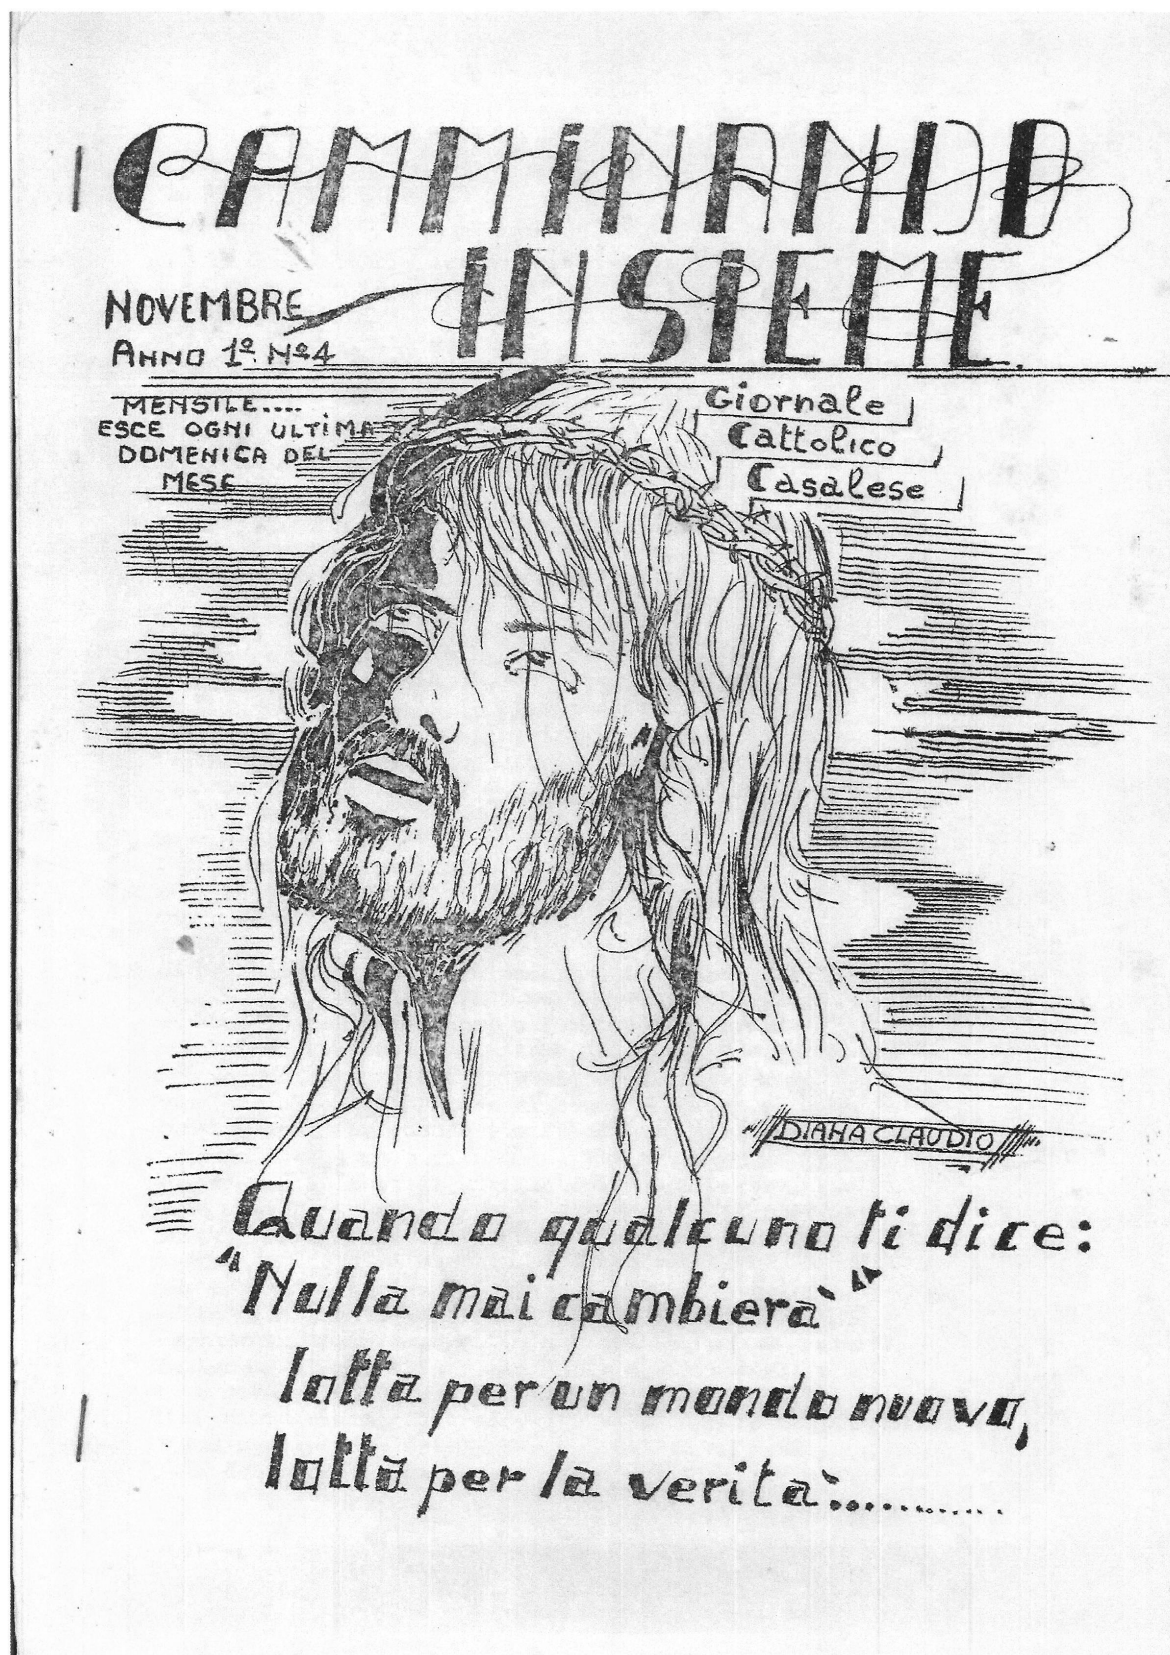 CAMMiNANDO
iNSIEME
NOVEMBRE
ANNO 1º. Nº4
MENSILE....
ESCE OGNI ULTIMA
DOMENICA DEL
MESE
Giornale
Cattolico
Casalese
DIANA CLAUDIO
Quando qualcuno ti dice:
"Nulla mai cambierà"
lotta per un mondo nuovo,
lotta per la verità............